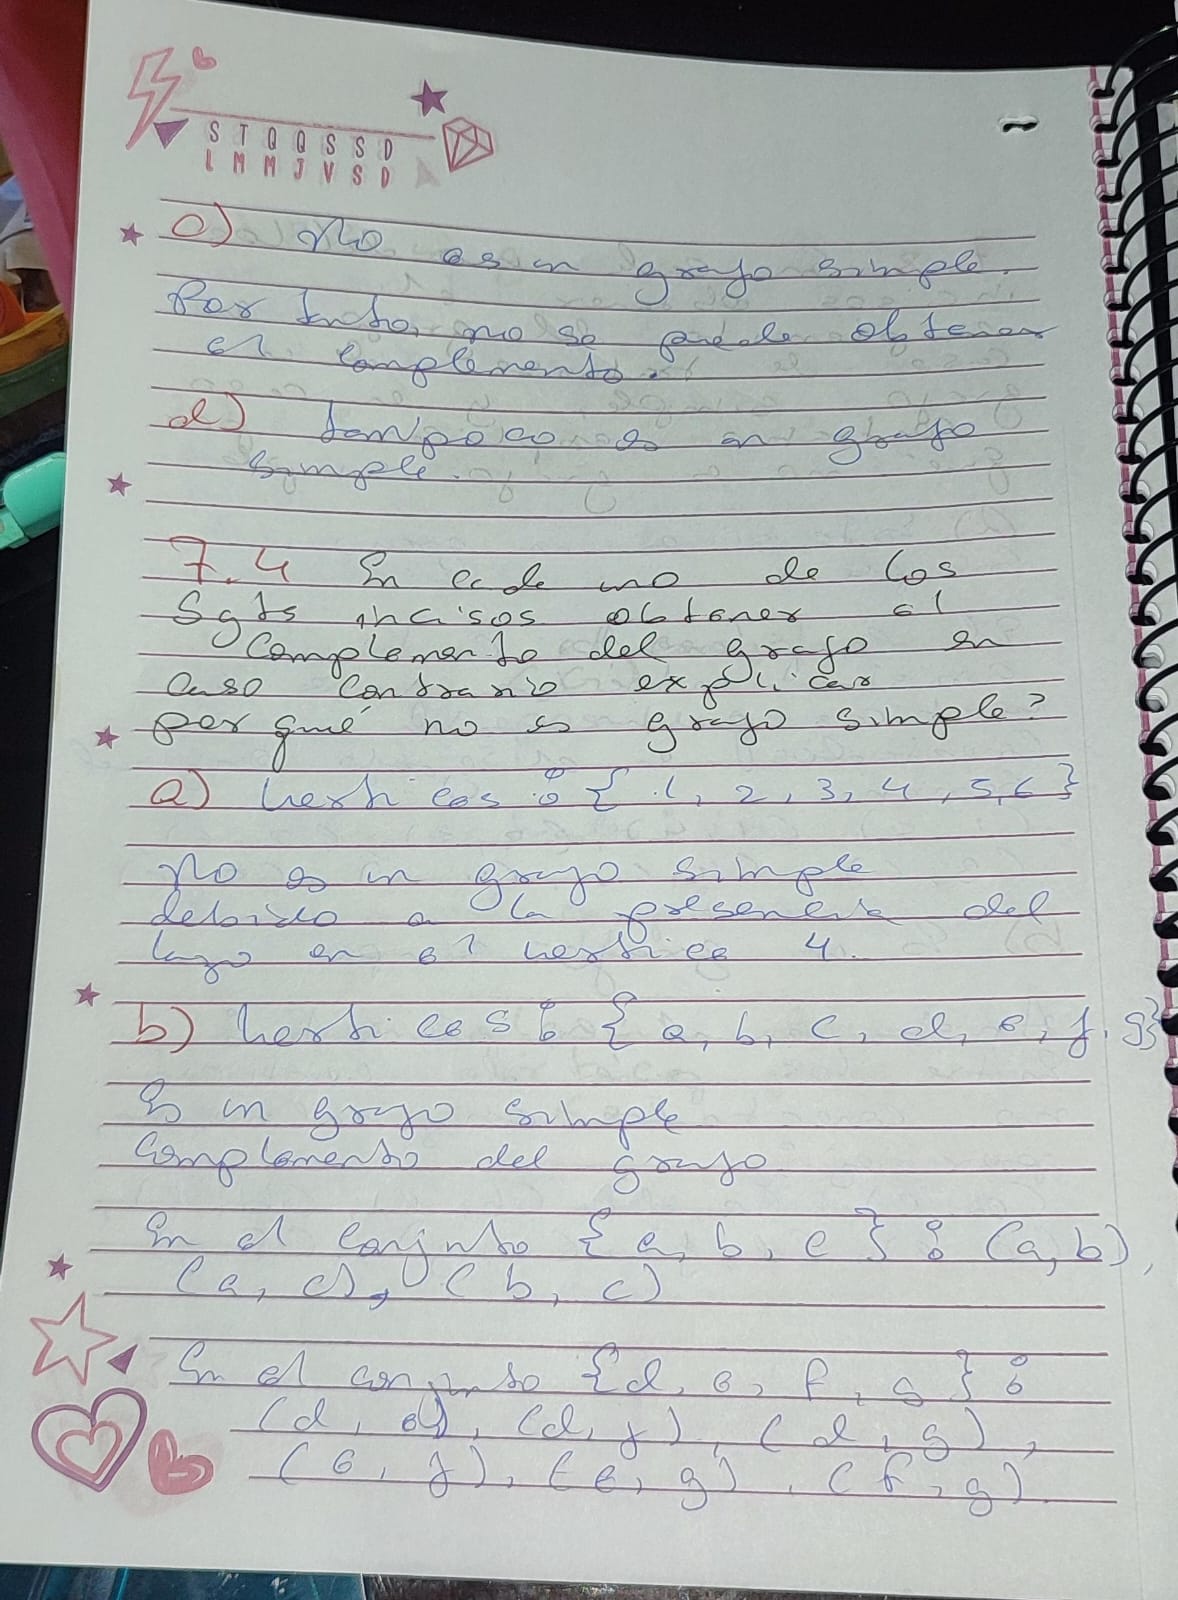 S T Q Q S S D
L M M J V S D
c) No es un grafo simple.
Por tanto, no se puede obtener
el complemento.
d) tampoco es un grafo
simple.
7.4 En cada uno de los
Sgts incisos obtener el
Complemento del grafo en
caso contrario explicar
por qué no es grafo simple?
a) Vertices : { 1, 2, 3, 4, 5, 6 }
No es un grafo simple
debido a la presencia del
lazo en el vertice 4.
b) Vertices : { a, b, c, d, e, f, g }
Es un grafo simple
Complemento del grafo
En el conjunto { a, b, c } : (a, b),
(a, c), (b, c)
En el conjunto { d, e, f, g } :
(d, e), (d, f), (d, g),
(e, f), (e, g), (f, g)